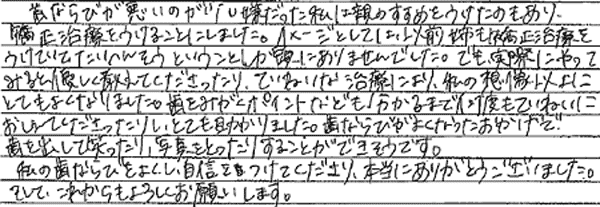 歯ならびが悪いのがいや嫌だった私は親のすすめをうけたのもあり、
矯正治療をうけることにしました。イメージとしては以前姉も矯正治療を
うけていてたいへんそうということしか頭にありませんでした。でも、実際にやって
みると優しく教えてくださったり、ていねいな治療により、私の想像以上に
とてもよくなりました。歯をみがくポイントなども分かるまで何度もていねいに
おしえてくださったりし、とても助かりました。歯ならびがよくなったおかげで
歯を出して笑ったり、写真をとったりすることができそうです。
私の歯ならびをよくし、自信をつけてくださり、本当にありがとうございました。
そして、これからもよろしくお願いします。